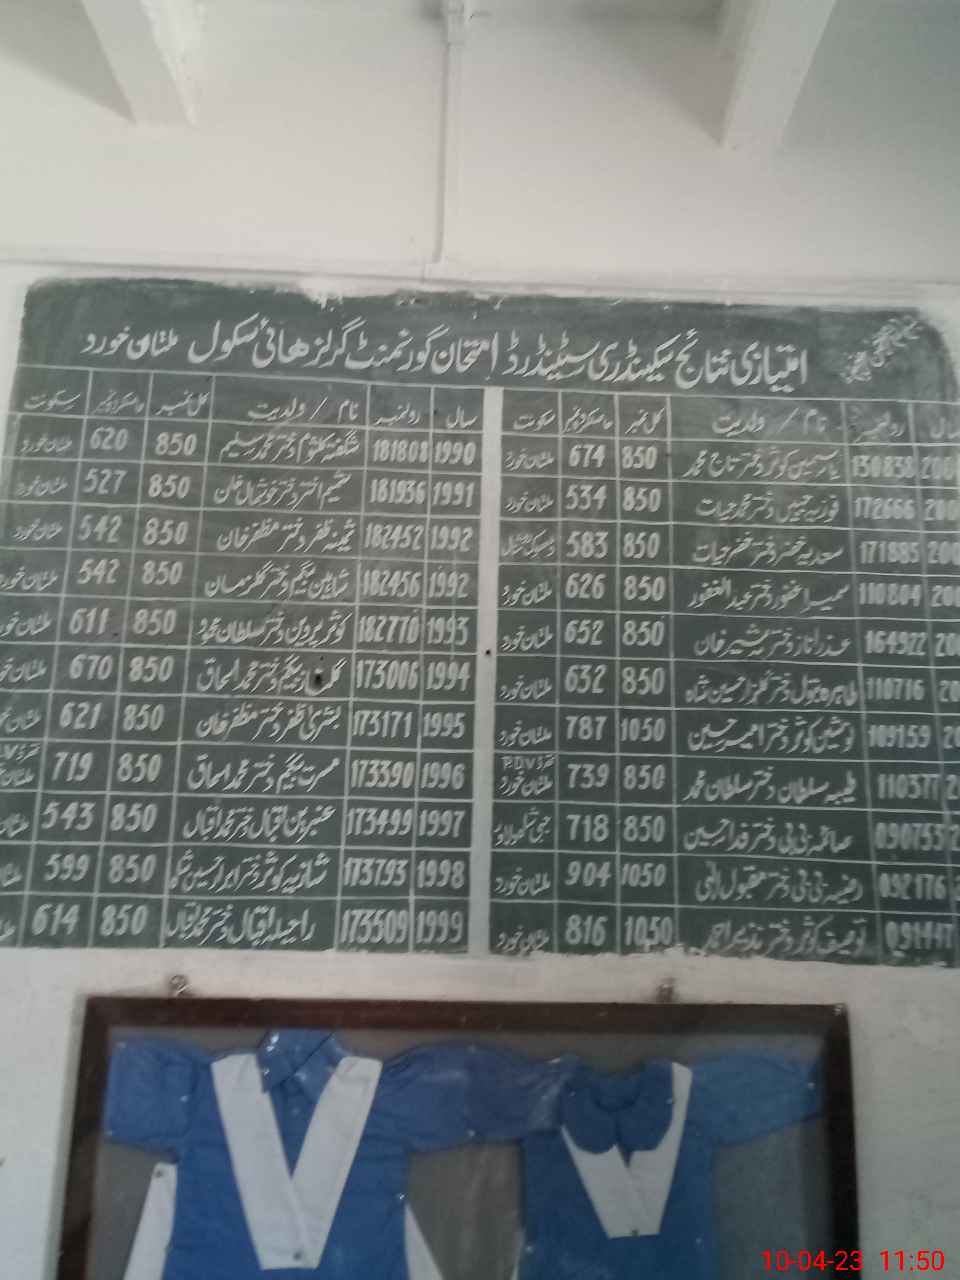 امتیازی نتائج سیکنڈری سٹینڈرڈ امتحان گورنمنٹ گرلز ھائی سکول ملتان خورد
سال رولنمبر نام / ولدیت کل نمبر حاصلکردہ نمبر سکونت
1990 181808 شگفتہ کلثوم دختر محمد سلیم 850 620 ملتان خورد
1991 181936 اختر دختر خوشحال خان 850 527 ملتان خورد
1992 182452 ثمینہ ظفر دختر مظفر خان 850 542 ملتان خورد
1992 182456 شاہین بیگم دختر 850 542 ملتان خورد
1993 182770 کوثر پروین دختر سلطان محمود 850 611 ملتان خورد
1994 173006 بیگم دختر محمد اسحاق 850 670 ملتان خورد
1995 173171 بشریٰ ظفر دختر مظفر خان 850 621
1996 173390 مسرت بیگم دختر محمد اسحاق 850 719
1997 173499 عنبرین اقبال دختر محمد اقبال 850 543
1998 173793 شازیہ کوثر دختر 850 599
1999 173509 راحیلہ اقبال دختر محمد اقبال 850 614
سال رولنمبر نام / ولدیت کل نمبر حاصلکردہ نمبر سکونت
200 130838 یاسمین کوثر دختر تاج محمد 850 674 ملتان خورد
200 172666 فوزیہ جبیں دختر محمد حیات 850 534 ملتان خورد
200 171885 سعدیہ خضر دختر خضر حیات 850 583
200 110804 سمیرا غفور دختر عبدالغفور 850 626 ملتان خورد
200 164922 عذرا ناز دختر بشیر خان 850 652 ملتان خورد
20 110716 طاہرہ بتول دختر گلزار حسین شاہ 850 632 ملتان خورد
20 109159 نوشین کوثر دختر امیر حسین 1050 787 ملتان خورد
2 110377 طیبہ سلطان دختر سلطان محمد 850 739 ملتان خورد
2 090753 صائمہ بی بی دختر فدا حسین 850 718
092176 بی بی دختر مقبول الہی 1050 904 ملتان خورد
091447 توصیف کوثر دختر نذیر احمد 1050 816 ملتان خورد
10-04-23 11:50